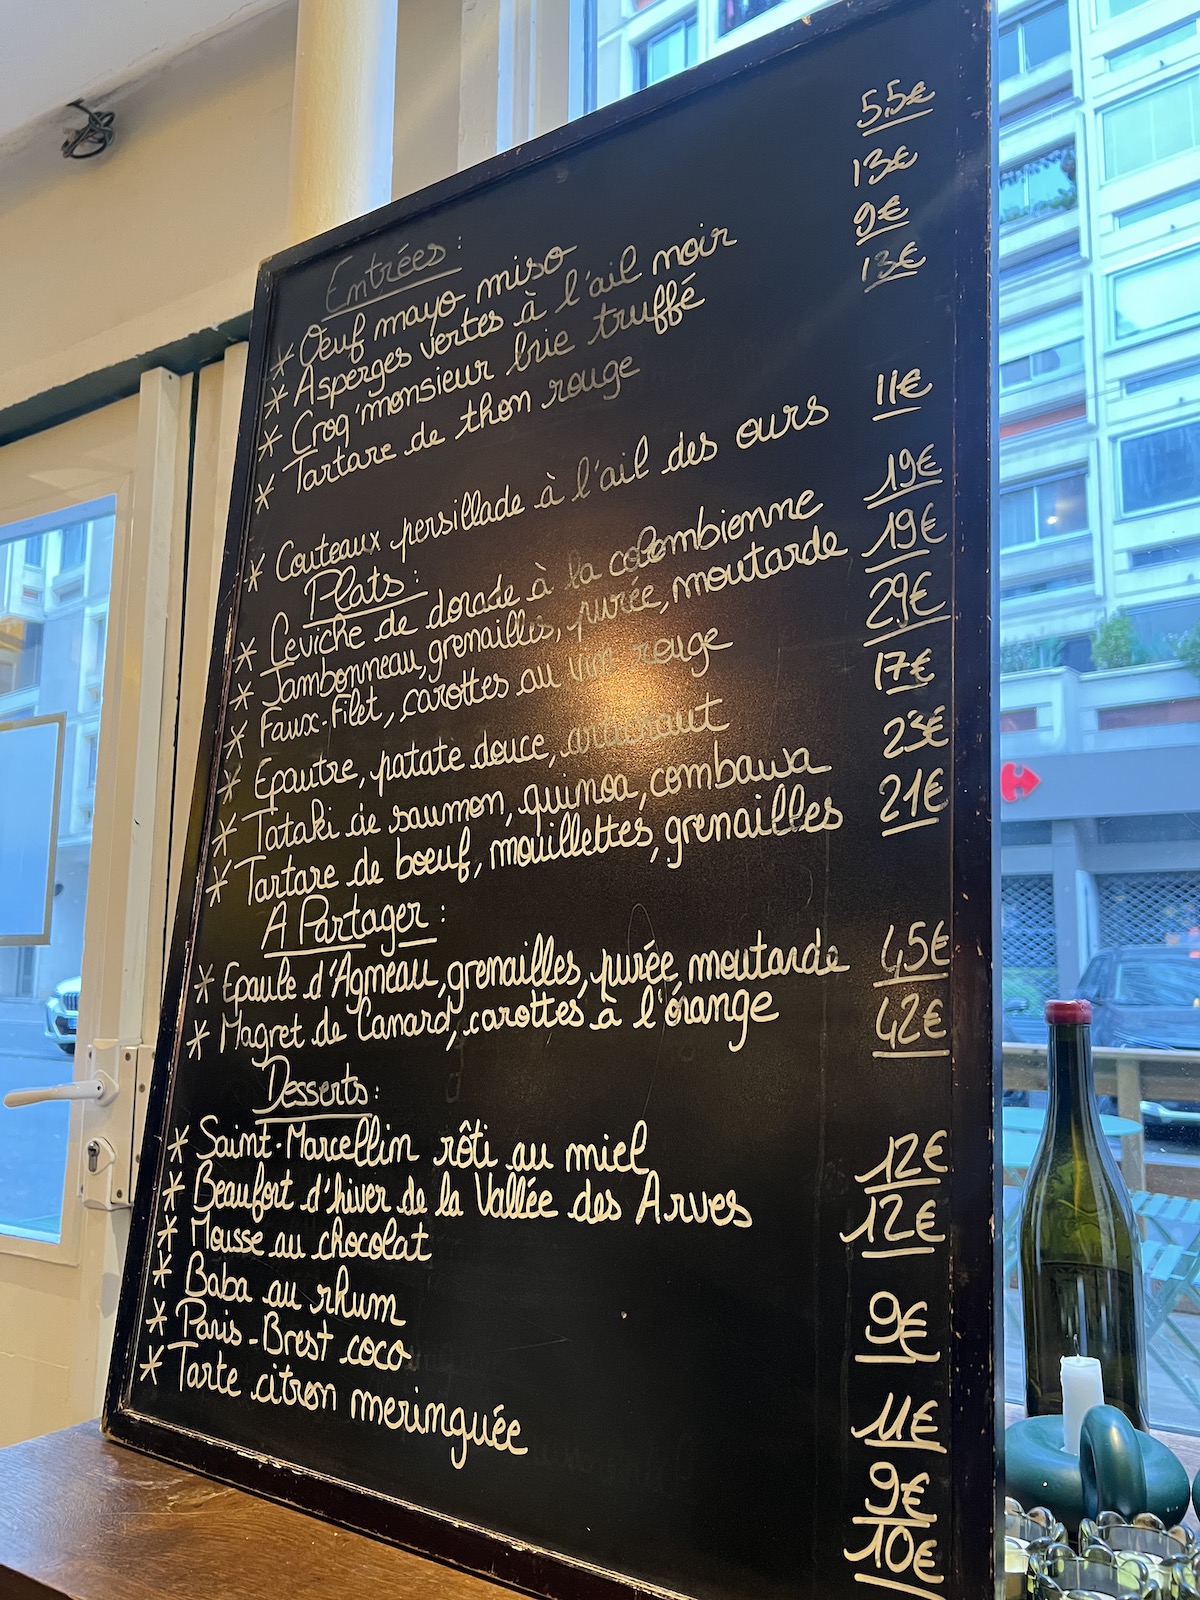 Entrées :
* Œuf mayo miso 5,5€
* Asperges vertes à l'ail noir 13€
* Croq'monsieur brie truffé 9€
* Tartare de thon rouge 13€
* Couteaux persillade à l'ail des ours 11€
Plats :
* Ceviche de dorade à la colombienne 19€
* Jambonneau, grenailles, purée, moutarde 19€
* Faux-Filet, carottes au vin rouge 29€
* Epautre, patate douce, 17€
* Tataki de saumon, quinoa, combawa 23€
* Tartare de bœuf, mouillettes, grenailles 21€
A Partager :
* Epaule d'Agneau, grenailles, purée, moutarde 45€
* Magret de Canard, carottes à l'orange 42€
Desserts :
* Saint-Marcellin rôti au miel 12€
* Beaufort d'hiver de la Vallée des Arves 12€
* Mousse au chocolat 9€
* Baba au rhum 11€
* Paris-Brest coco 9€
* Tarte citron meringuée 10€